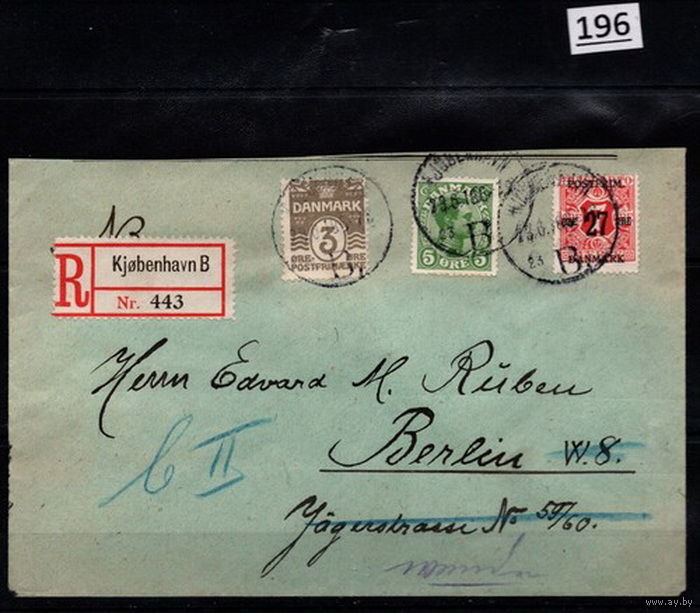 196
R
Kjøbenhavn B
Nr. 443
DANMARK
3
ØRE ØRE
POSTFRIMÆRKE
B.
KJØBENHAVN
B
5 ØRE 5
POSTFRIM.
27
ØRE
DANMARK
B.
Herrn Edvard M. Rüben
Berlin W. 8.
Jägerstrasse No 59/60.
C II
www.ay.by